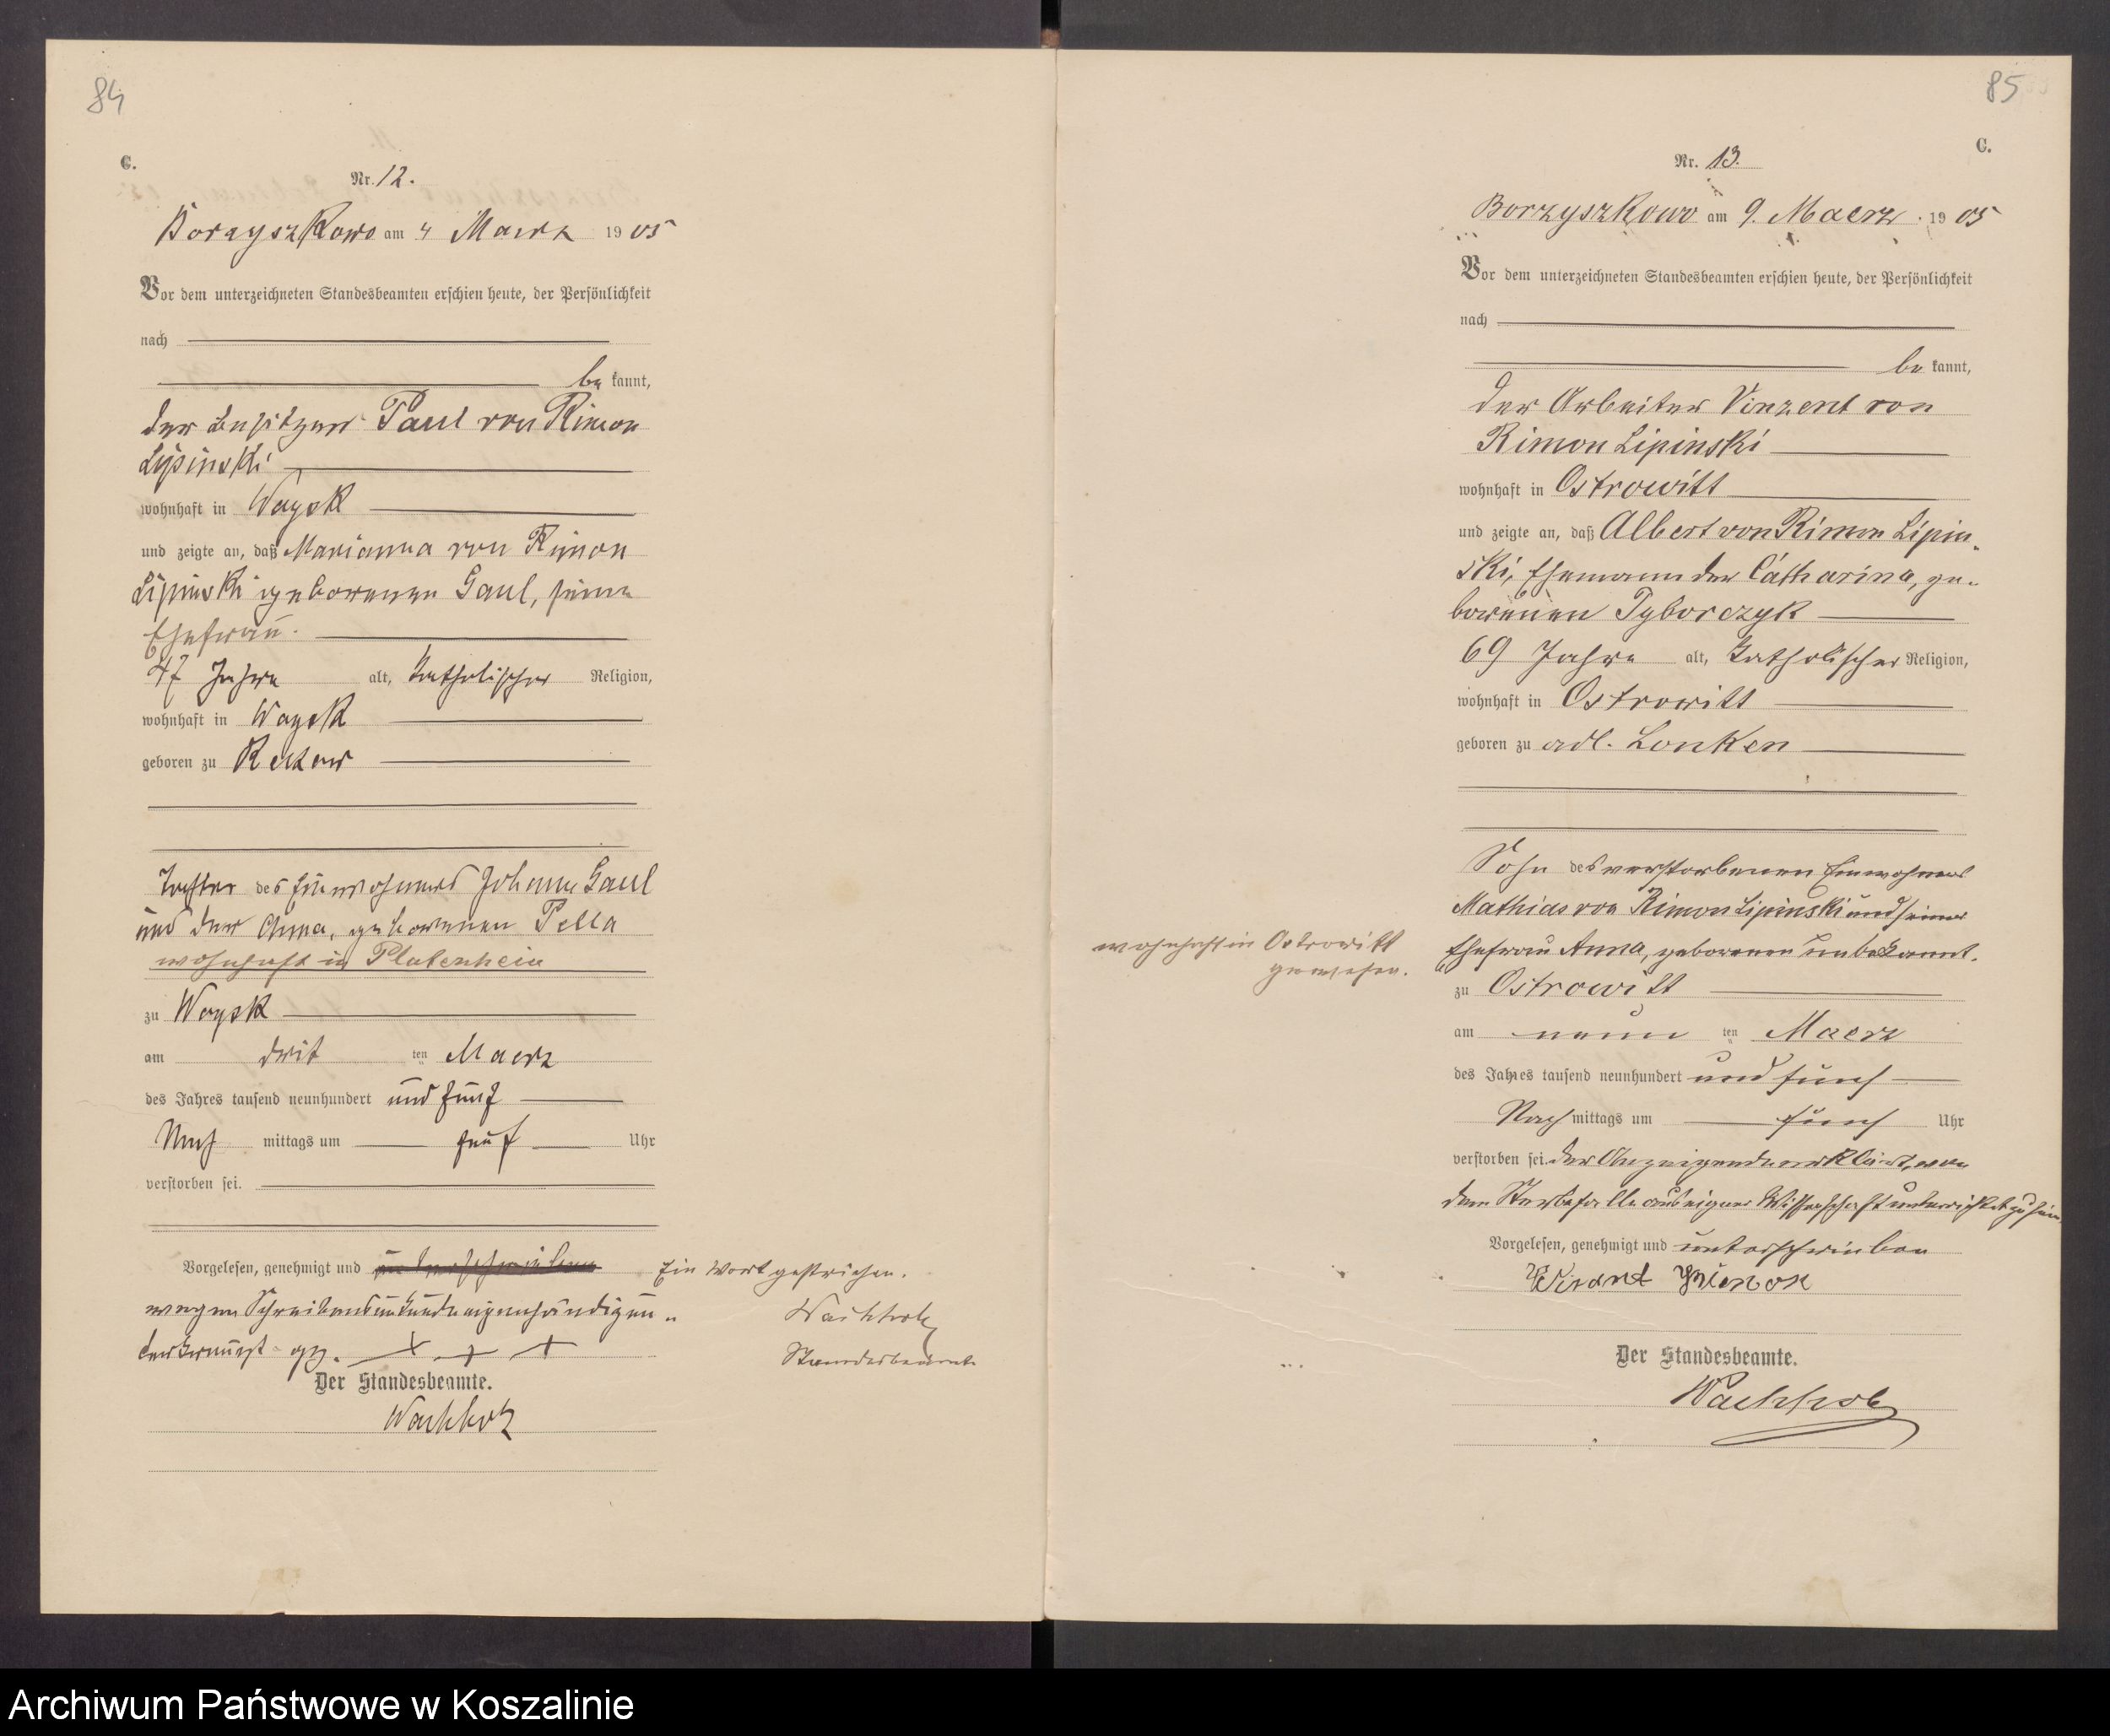 84
C.
Nr. 12.
Borzyszkowo am 4 Maerz 1905
Vor dem unterzeichneten Standesbeamten erschien heute, der Persönlichkeit
nach
be kannt,
der Besitzer Paul von Rimon
Lipinski
wohnhaft in Woysk
und zeigte an, daß Marianna von Rimon
Lipinski geborenen Gaul, seine
Ehefrau.
47 Jahre alt, katholischer Religion,
wohnhaft in Woysk
geboren zu
Tochter des Einwohners Johann Gaul
und der Anna, geborenen Pella
wohnhaft in
zu Woysk
am drit ten Maerz
des Jahres tausend neunhundert und fünf
Nach mittags um fünf Uhr
verstorben sei.
Vorgelesen, genehmigt und unterschrieben Ein Wort gestrichen.
wegen Schreibensunkunde eigenhändig un-
terkreuzt gez. + + +
Wachholz
Standesbeamte
Der Standesbeamte.
Wachholz
85
C.
Nr. 13.
Borzyszkowo am 9. Maerz 1905
Vor dem unterzeichneten Standesbeamten erschien heute, der Persönlichkeit
nach
be kannt,
der Arbeiter Vinzent von
Rimon Lipinski
wohnhaft in Ostrowitt
und zeigte an, daß Albert von Rimon Lipin-
ski, Ehemann der Catharina, ge-
borenen Tyborczyk
69 Jahre alt, katholischer Religion,
wohnhaft in Ostrowitt
geboren zu adl. Lonken
Sohn des verstorbenen Einwohners
Mathias von Rimon Lipinski und seiner
Ehefrau Anna, geborenen unbekannt.
wohnhaft in Ostrowitt
gewesen.
zu Ostrowitt
am neun ten Maerz
des Jahres tausend neunhundert und fünf
Nach mittags um fünf Uhr
verstorben sei. Der Anzeigende erklärt, von
dem Sterbefalle aus eigner Wissenschaft unterrichtet zu sein.
Vorgelesen, genehmigt und unterschrieben
Der Standesbeamte.
Wachholz
Archiwum Państwowe w Koszalinie